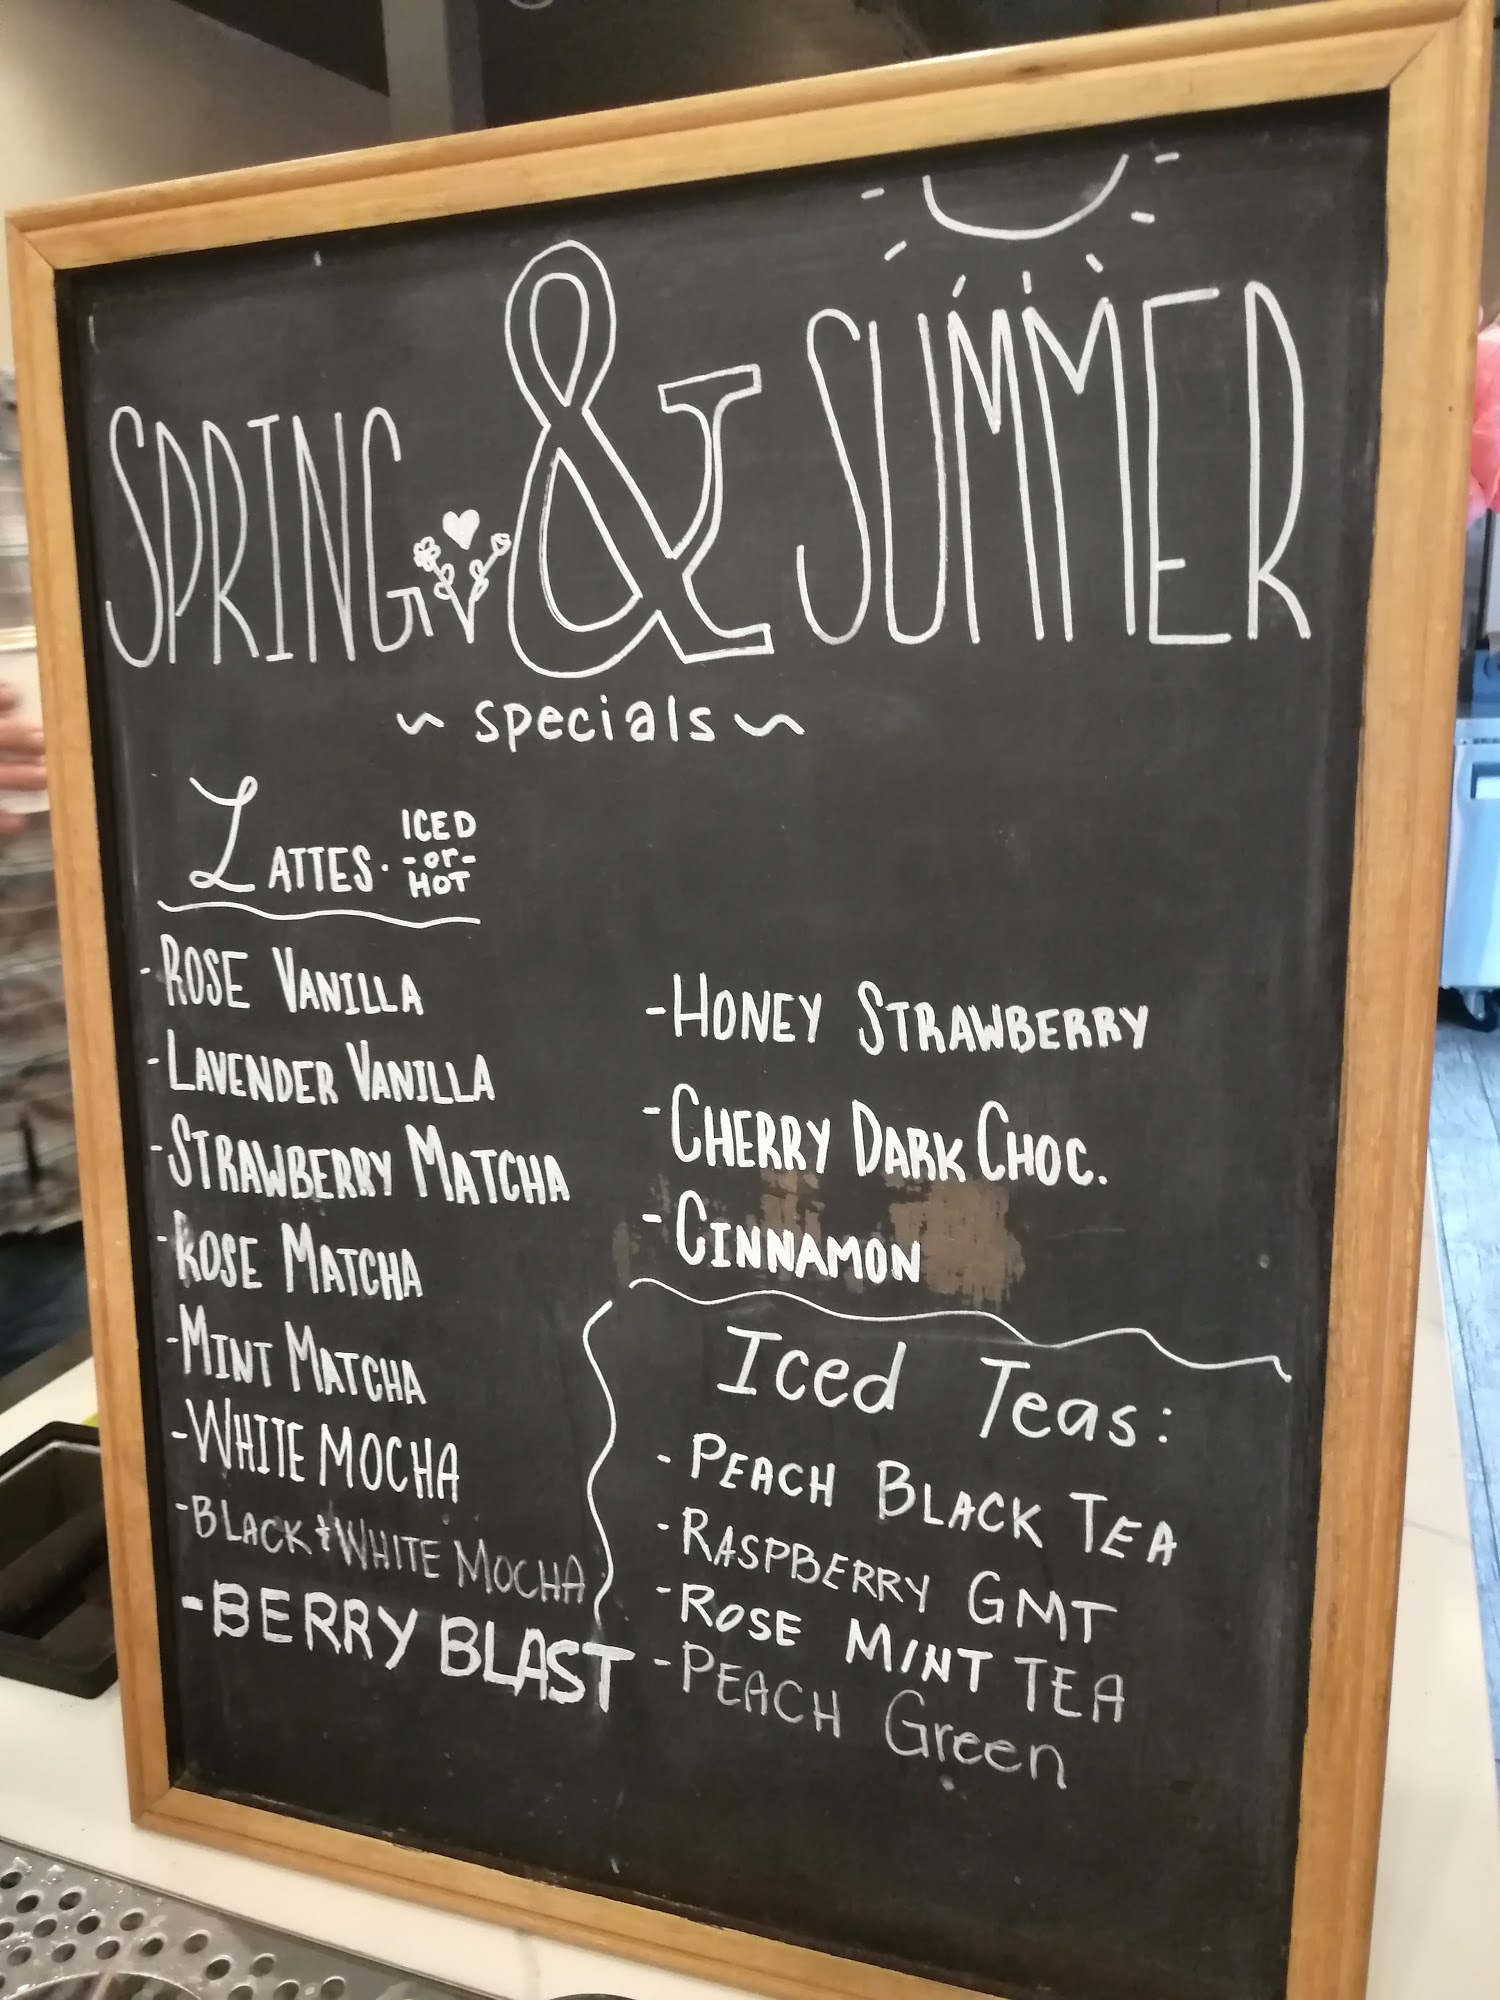 SPRING & SUMMER
~ specials ~
LATTES · ICED
-or-
HOT
-ROSE VANILLA
-LAVENDER VANILLA
-STRAWBERRY MATCHA
-ROSE MATCHA
-MINT MATCHA
-WHITE MOCHA
-BLACK & WHITE MOCHA
-BERRY BLAST
-HONEY STRAWBERRY
-CHERRY DARK CHOC.
-CINNAMON
Iced Teas:
-PEACH BLACK TEA
-RASPBERRY GMT
-ROSE MINT TEA
-PEACH Green